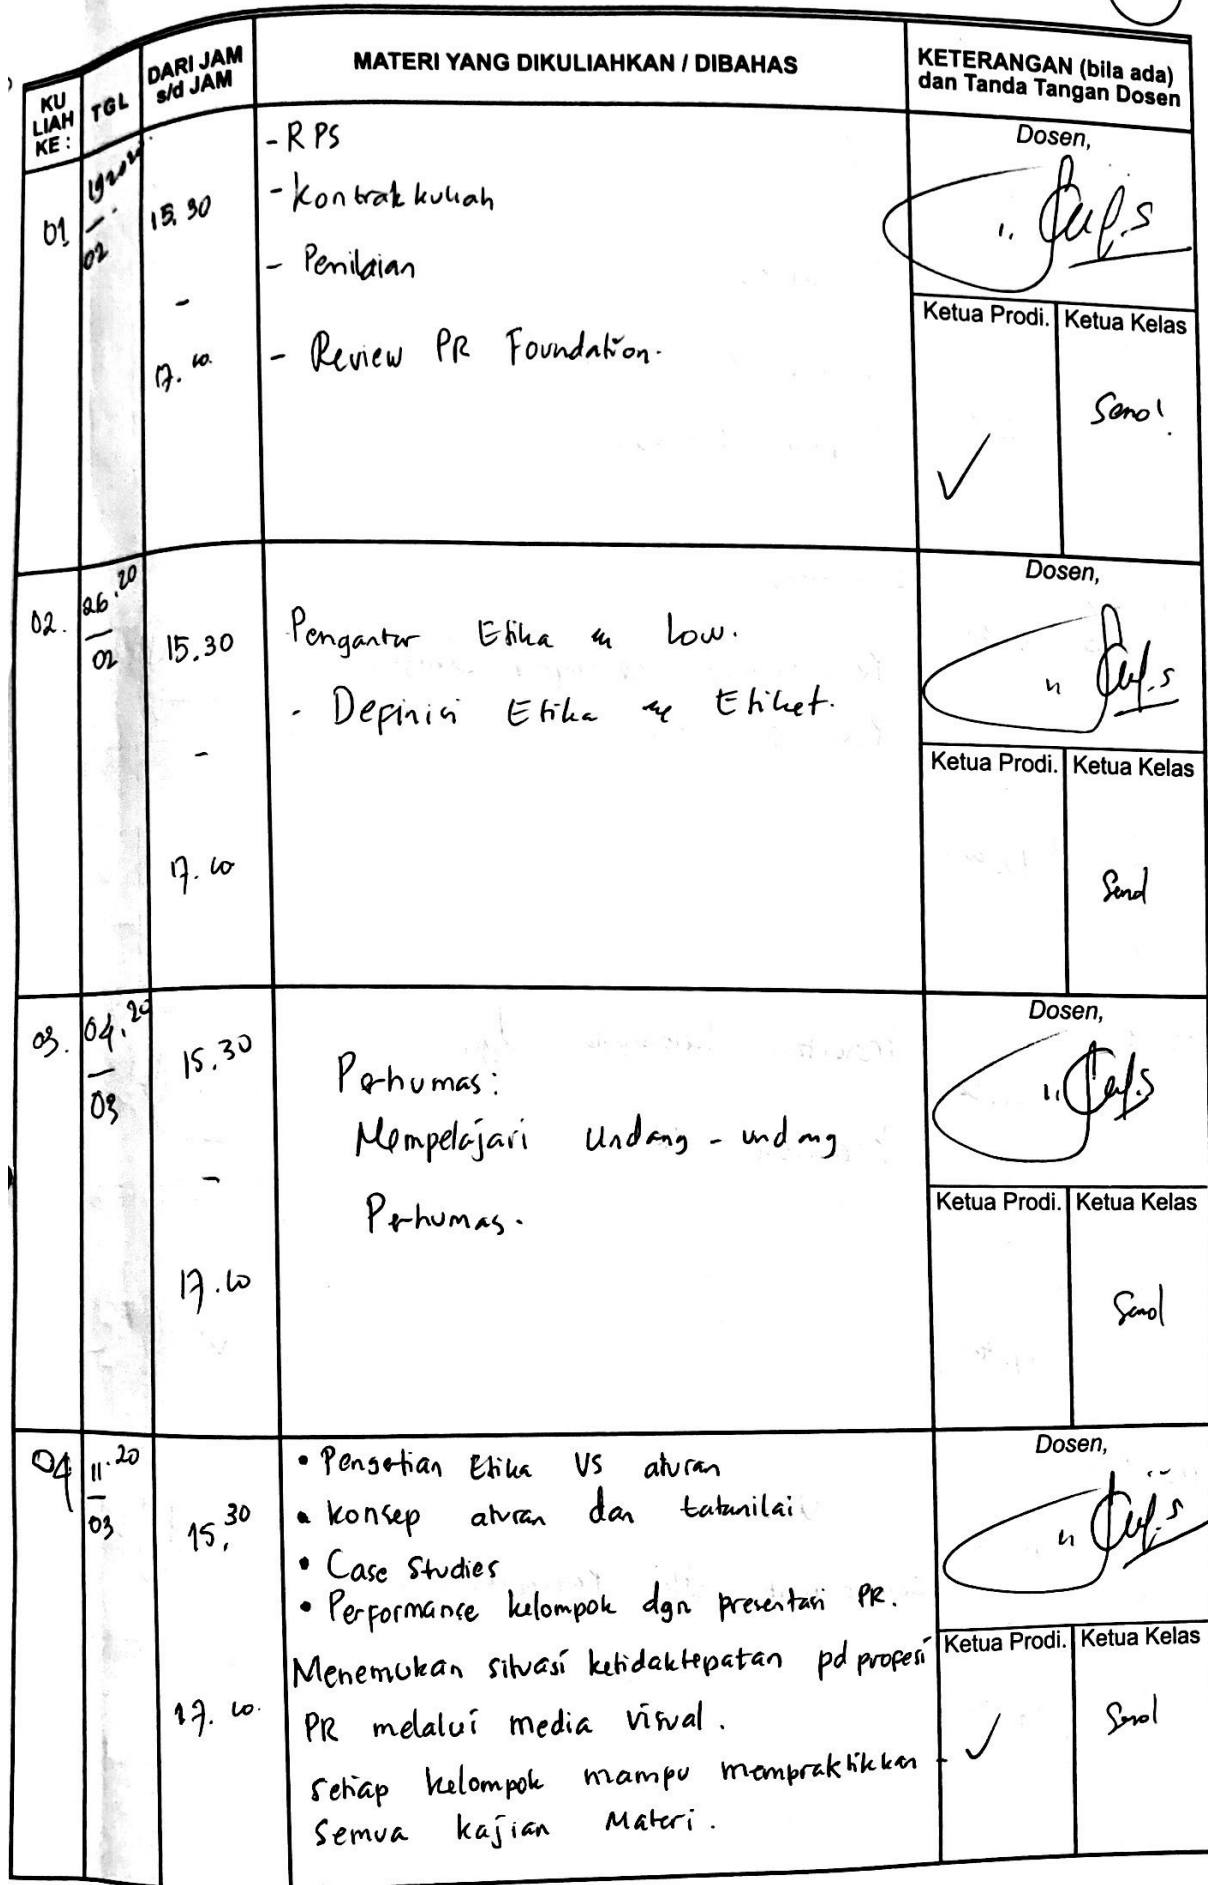 KU
LIAH
KE :
TGL
DARI JAM
s/d JAM
MATERI YANG DIKULIAHKAN / DIBAHAS
KETERANGAN (bila ada)
dan Tanda Tangan Dosen
01
02
15.30
-
17.10
- RPS
- Kontrak kuliah
- Penilaian
- Review PR Foundation.
Dosen,
Ketua Prodi.
Ketua Kelas
02.
26.20
02
15.30
-
17.10
Pengantar Etika Low.
- Definisi Etika Etiket.
Dosen,
Ketua Prodi.
Ketua Kelas
03.
04.20
03
15.30
-
17.10
Perhumas:
Mempelajari Undang - undang
Perhumas.
Dosen,
Ketua Prodi.
Ketua Kelas
04
11.20
03
15.30
17.10.
• Pengertian Etika VS aturan
• Konsep aturan dan tatanilai
• Case Studies
• Performance kelompok dgn presentasi PR.
Menemukan situasi ketidaktepatan pd profesi
PR melalui media visual.
Setiap kelompok mampu mempraktikkan
Semua kajian Materi.
Dosen,
Ketua Prodi.
Ketua Kelas